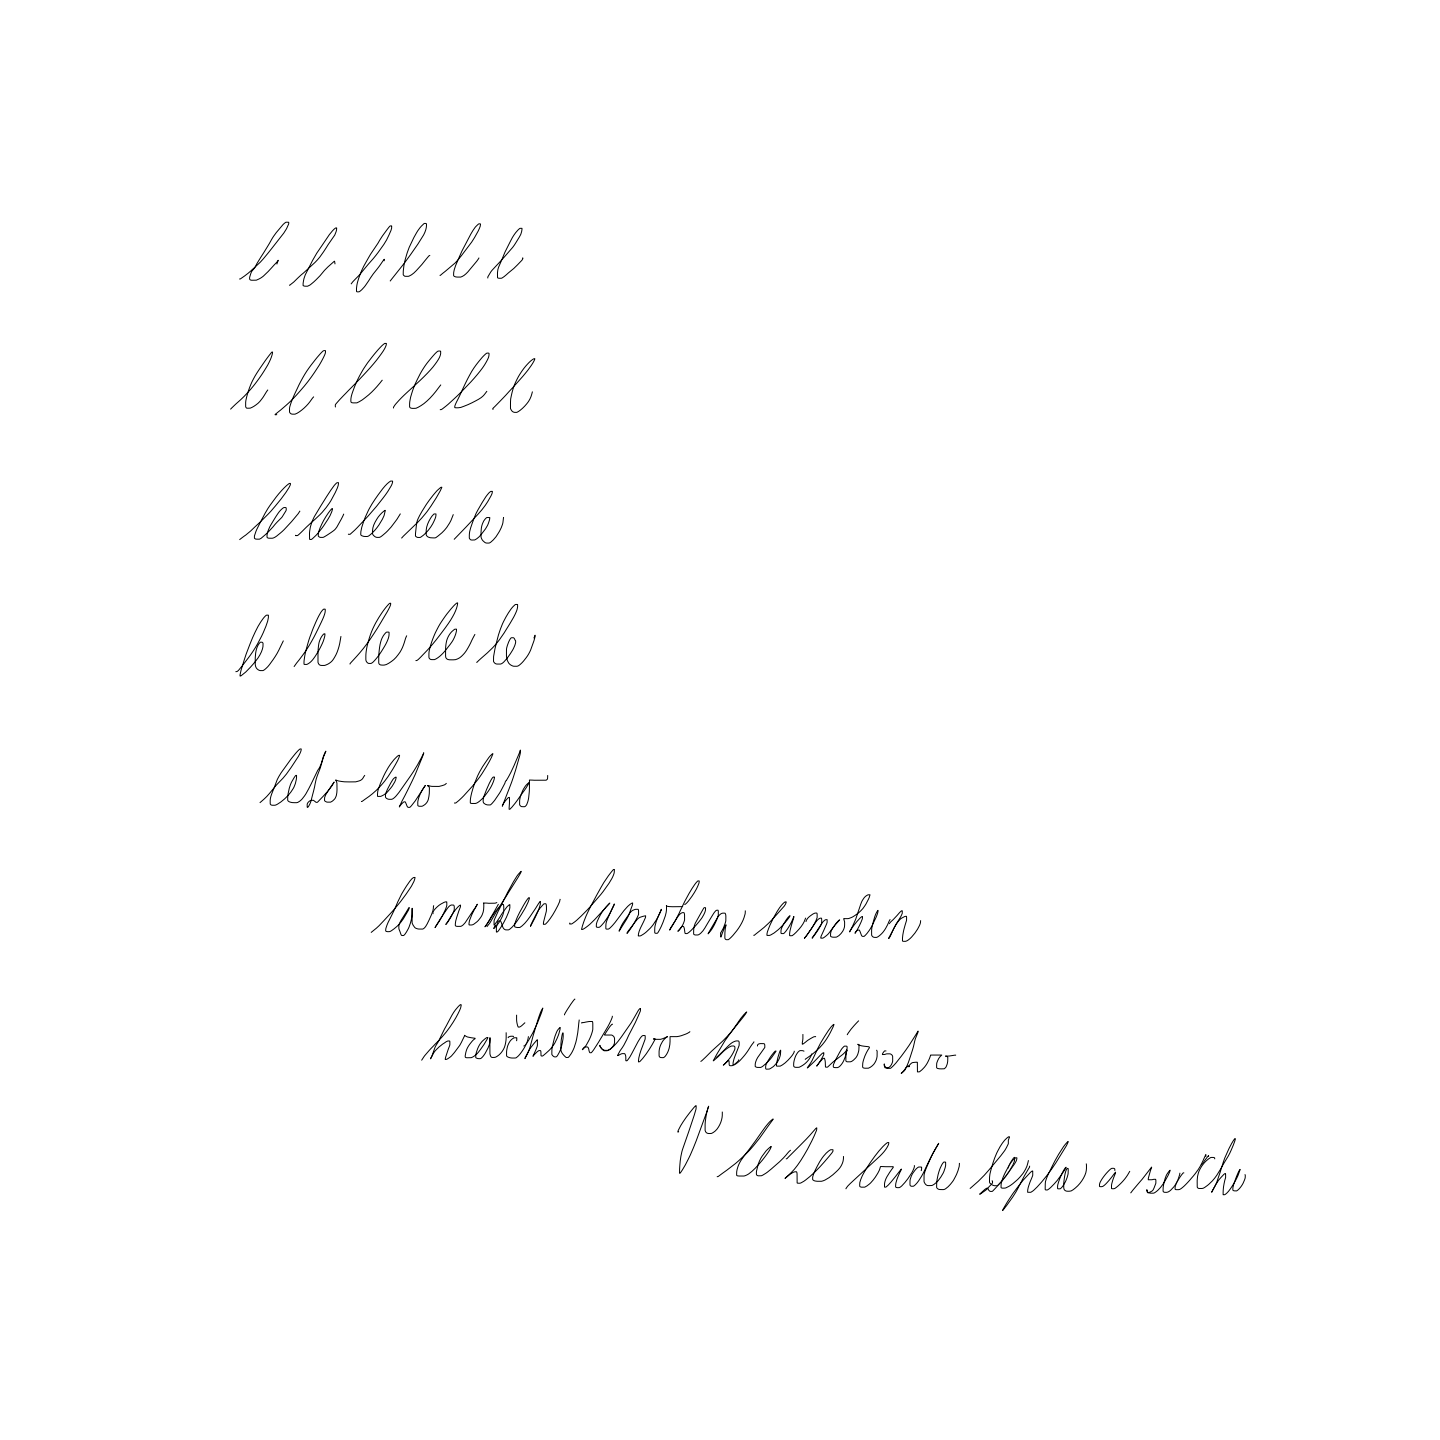 l l l l l l
l l l l l l
le le le le le
le le le le le
leto leto leto
lamoken lamoken lamoken
hračkárstvo hračkárstvo
V lete bude teplo a sucho